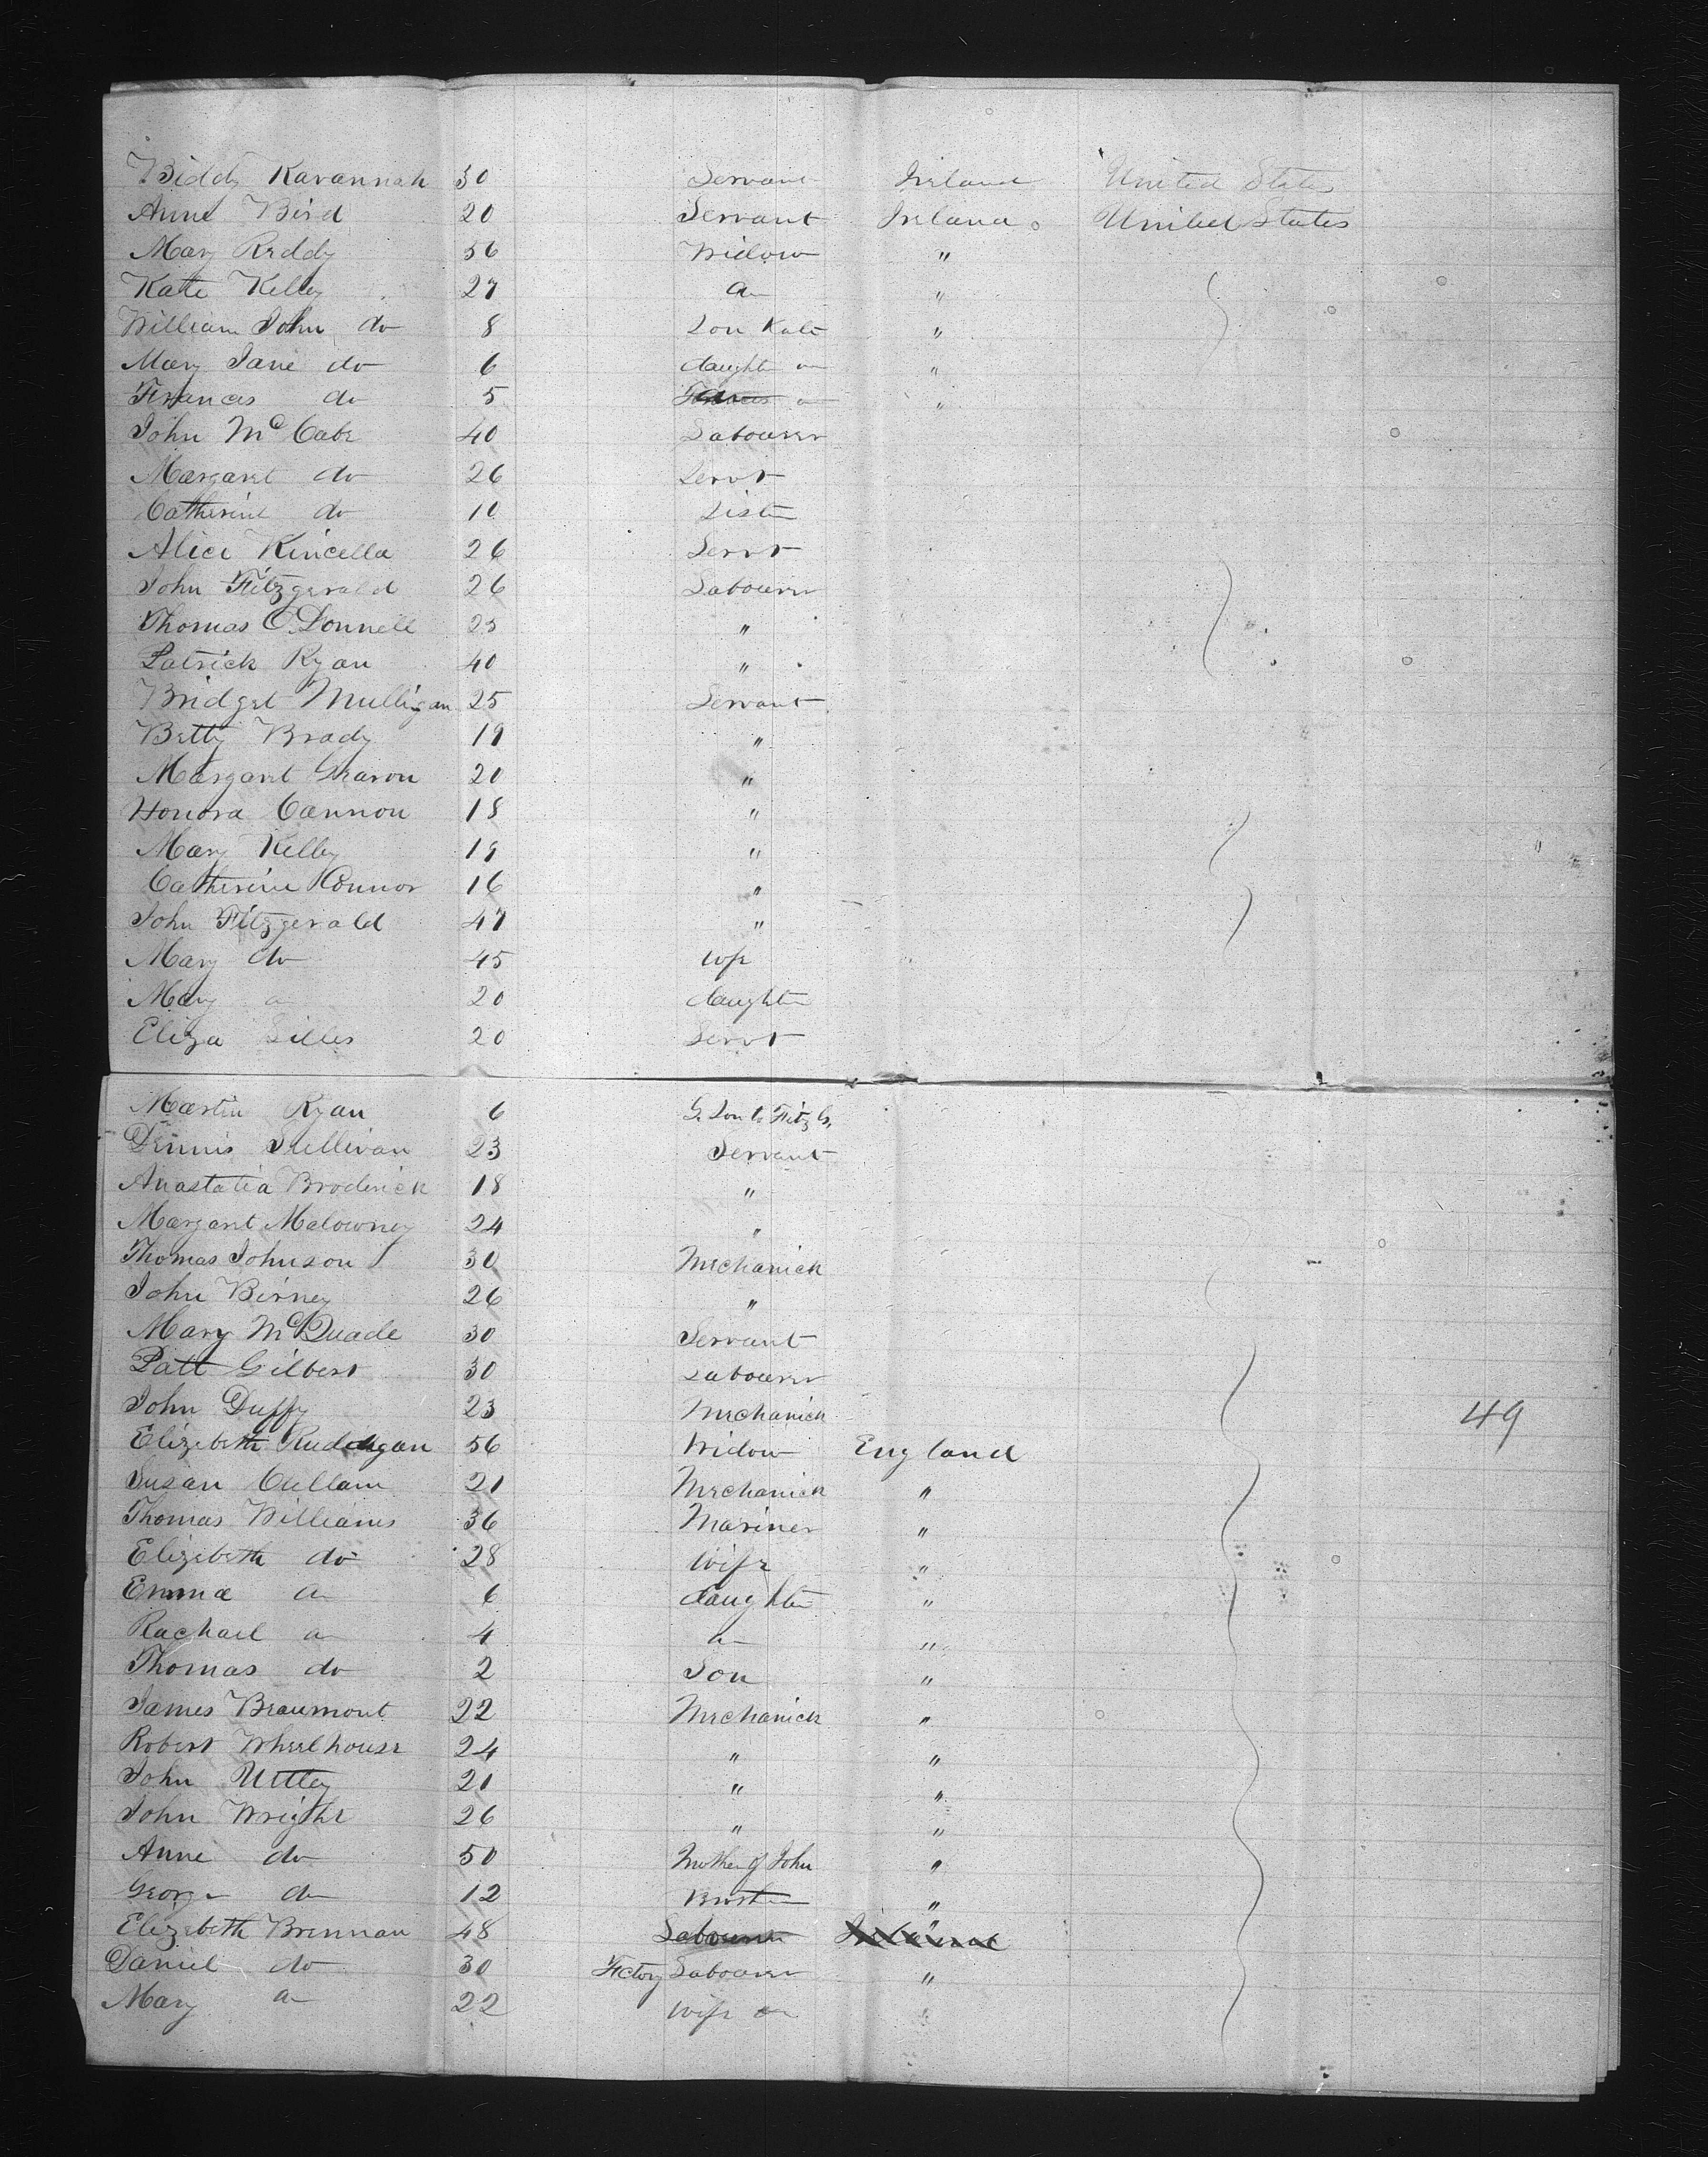 Biddy Kavannah 30 Servant Ireland United States
Anne Bird 20 Servant Ireland United States
Mary Reddy 56 Widow "
Kate Kelley 27 do "
William John do 8 Son Kate "
Mary Jane do 6 daughter do "
Frances do 5 do "
John McCabe 40 Labourer
Margaret do 26 Servt
Catherine do 10 Sister
Alice Kincella 26 Servt
John Fitzgerald 26 Labourer
Thomas O.Donnell 25 "
Patrick Ryan 40 "
Bridget Mulligan 25 Servant
Betty Brady 19 "
Margaret 20 "
Honora Cannon 18 "
Mary Kelley 19 "
Catherine Connor 16 "
John Fitzgerald 47 "
Mary do 45 wfe
Mary do 20 daughter
Eliza 20 Servt
Martin Ryan 6 G. Son to Fitz G.
Dennis Sullivan 23 Servant
Anastatia Broderick 18 "
Margaret Malowney 24 "
Thomas Johnson 30 Mechanick
John Birney 26 "
Mary McQuade 30 Servant
Patt Gilbert 30 Labourer
John Duffy 23 Mechanick 49
Elizebeth 56 Widow England
Susan Cullam 21 Mechanick "
Thomas Williams 36 Mariner "
Elizebeth do 28 Wife "
Emma do 6 daughter "
Rachael do 4 do "
Thomas do 2 Son "
James Beaumont 22 Mechanick "
Robert Wheelhouse 24 " "
John Uttley 21 " "
John Wright 26 " "
Anne do 50 Mother of John "
George do 12 Brother "
Elizebeth Brennan 48 Labourer Ireland "
Daniel do 30 Fctory Labourer "
Mary do 22 wife do "